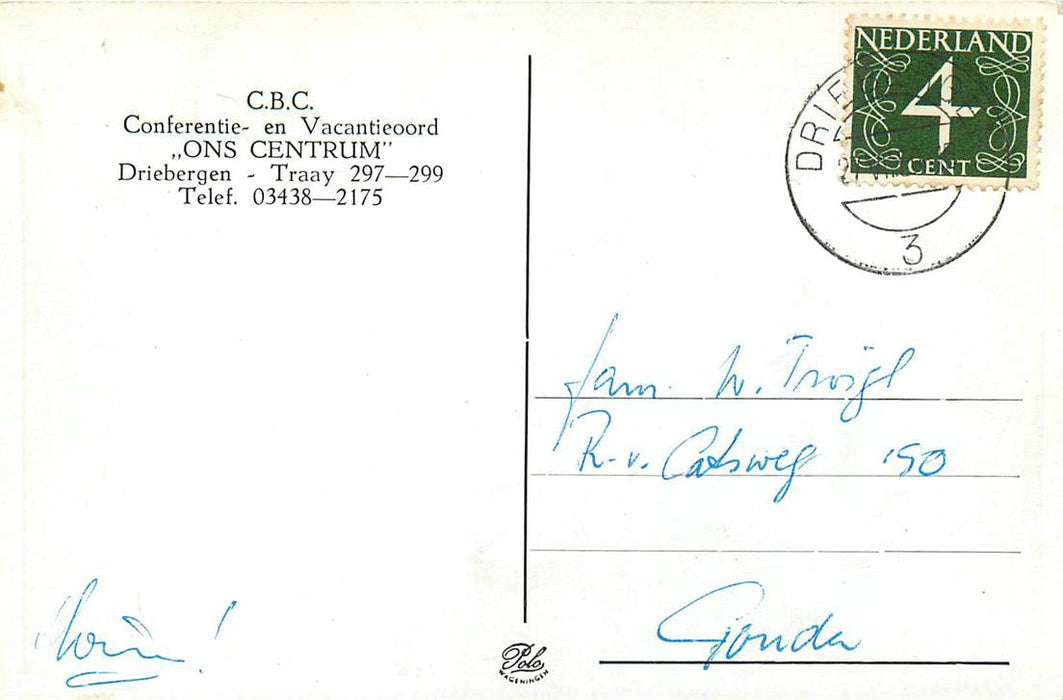 C.B.C.
Conferentie- en Vacantieoord
„ONS CENTRUM”
Driebergen - Traay 297—299
Telef. 03438—2175
NEDERLAND
4
CENT
DRIE
27 VIII
3
fam. W.
R. v. Catsweg 190
Gouda
Polo
WAGENINGEN